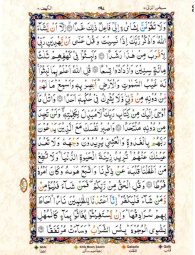 وَلَا تَقُولَنَّ لِشَايْءٍ إِنِّي فَاعِلٌ ذَٰلِكَ غَدًا ۝ إِلَّا أَنْ يَشَاءَ
اللَّهُ وَاذْكُرْ رَبَّكَ إِذَا نَسِيتَ وَقُلْ عَسَىٰ أَنْ يَهْدِيَنِ رَبِّي
لِأَقْرَبَ مِنْ هَٰذَا رَشَدًا ۝ وَلَبِثُوا فِي كَهْفِهِمْ ثَلَٰثَ
مِائَةٍ سِنِينَ وَازْدَادُوا تِسْعًا ۝ قُلِ اللَّهُ أَعْلَمُ بِمَا لَبِثُوا
لَهُ غَيْبُ السَّمَٰوَٰتِ وَالْأَرْضِ أَبْصِرْ بِهِ وَأَسْمِعْ مَا لَهُمْ
مِنْ دُونِهِ مِنْ وَلِيٍّ وَلَا يُشْرِكُ فِي حُكْمِهِ أَحَدًا ۝ وَاتْلُ مَا
أُوحِيَ إِلَيْكَ مِنْ كِتَابِ رَبِّكَ لَا مُبَدِّلَ لِكَلِمَٰتِهِ وَلَنْ تَجِدَ
مِنْ دُونِهِ مُلْتَحَدًا ۝ وَاصْبِرْ نَفْسَكَ مَعَ الَّذِينَ يَدْعُونَ
رَبَّهُمْ بِالْغَدَوٰةِ وَالْعَشِيِّ يُرِيدُونَ وَجْهَهُ وَلَا تَعْدُ
عَيْنَٰكَ عَنْهُمْ تُرِيدُ زِينَةَ الْحَيَوٰةِ الدُّنْيَا وَلَا تُطِعْ
مَنْ أَغْفَلْنَا قَلْبَهُ عَنْ ذِكْرِنَا وَاتَّبَعَ هَوَىٰهُ وَكَانَ أَمْرُهُ
فُرُطًا ۝ وَقُلِ الْحَقُّ مِنْ رَبِّكُمْ فَمَنْ شَاءَ فَلْيُؤْمِنْ
وَمَنْ شَاءَ فَلْيَكْفُرْ إِنَّا أَعْتَدْنَا لِلظَّٰلِمِينَ نَارًا أَحَاطَ
بِهِمْ سُرَادِقُهَا وَإِنْ يَسْتَغِيثُوا يُغَاثُوا بِمَاءٍ كَالْمُهْلِ
يَشْوِي الْوُجُوهَ بِئْسَ الشَّرَابُ وَسَاءَتْ مُرْتَفَقًا ۝